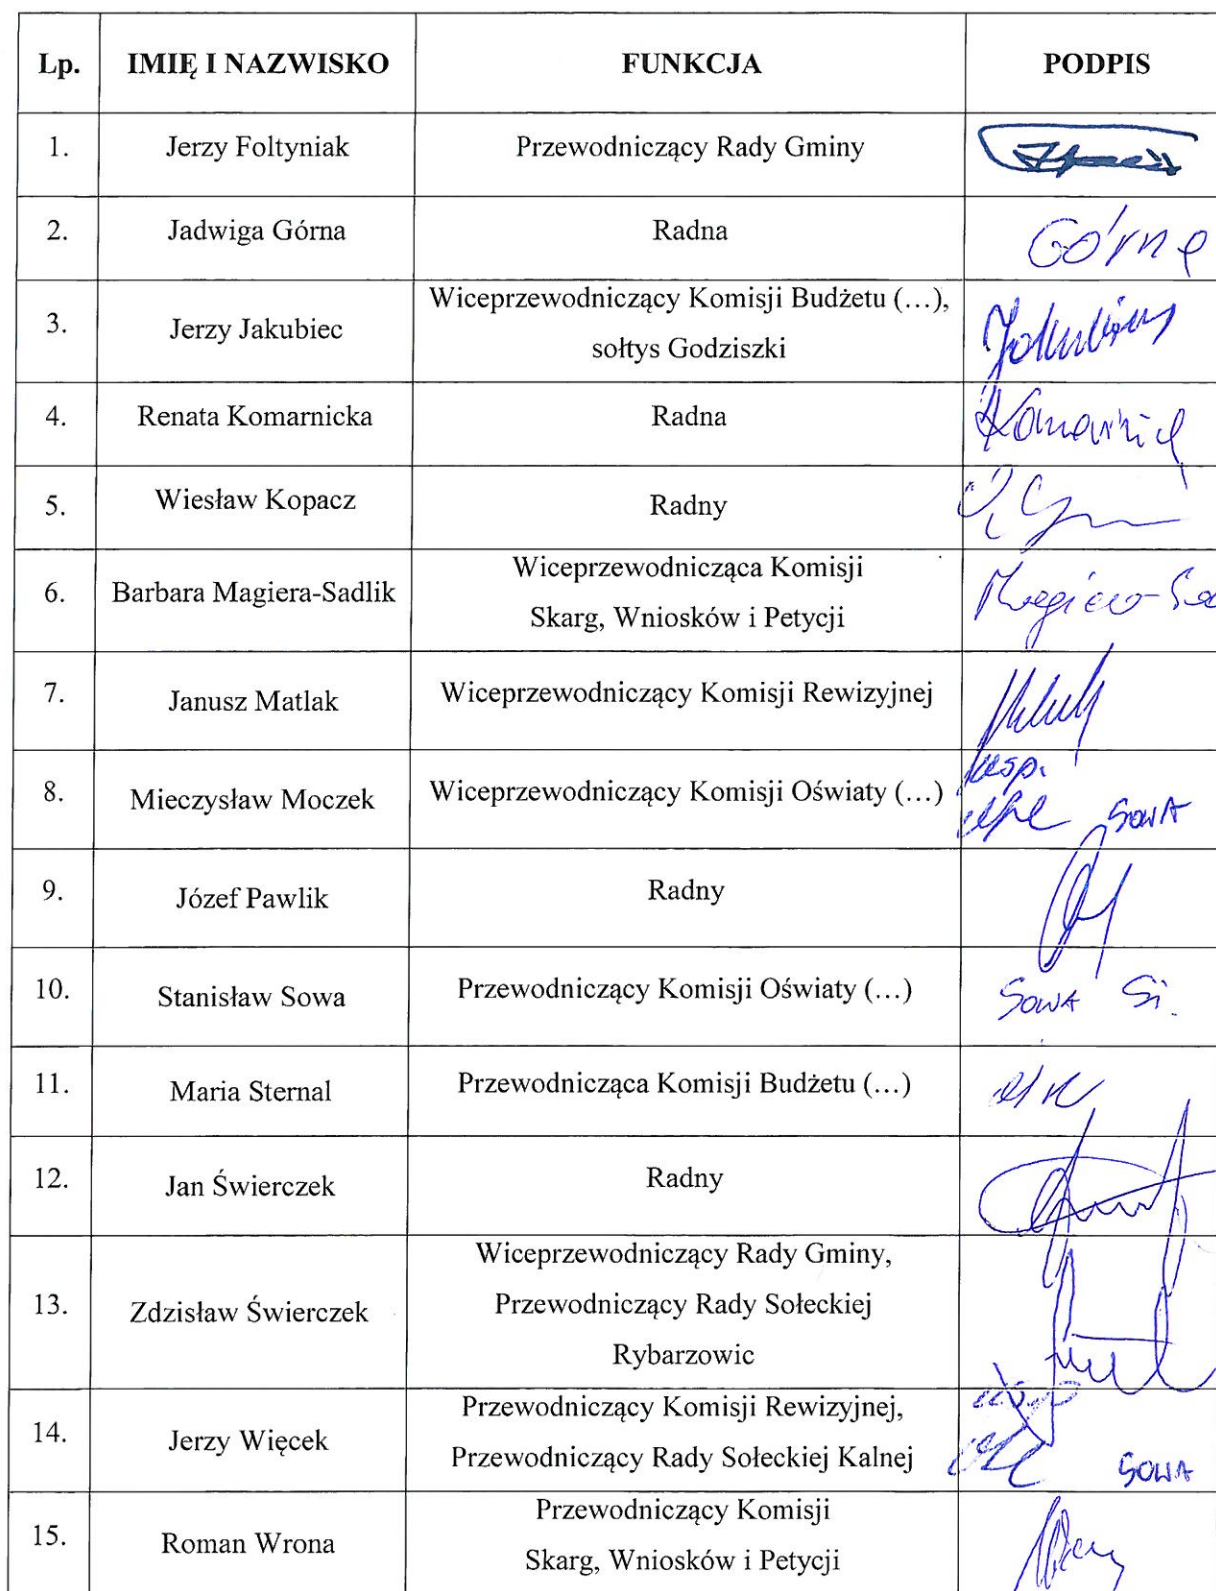 Lp. IMIĘ I NAZWISKO FUNKCJA PODPIS
1. Jerzy Foltyniak Przewodniczący Rady Gminy
2. Jadwiga Górna Radna Górna
3. Jerzy Jakubiec Wiceprzewodniczący Komisji Budżetu (…),
sołtys Godziszki
4. Renata Komarnicka Radna
5. Wiesław Kopacz Radny
6. Barbara Magiera-Sadlik Wiceprzewodnicząca Komisji
Skarg, Wniosków i Petycji
7. Janusz Matlak Wiceprzewodniczący Komisji Rewizyjnej
8. Mieczysław Moczek Wiceprzewodniczący Komisji Oświaty (…) SOWA
9. Józef Pawlik Radny
10. Stanisław Sowa Przewodniczący Komisji Oświaty (…) SOWA
11. Maria Sternal Przewodnicząca Komisji Budżetu (…)
12. Jan Świerczek Radny
13. Zdzisław Świerczek Wiceprzewodniczący Rady Gminy,
Przewodniczący Rady Sołeckiej
Rybarzowic
14. Jerzy Więcek Przewodniczący Komisji Rewizyjnej,
Przewodniczący Rady Sołeckiej Kalnej SOWA
15. Roman Wrona Przewodniczący Komisji
Skarg, Wniosków i Petycji